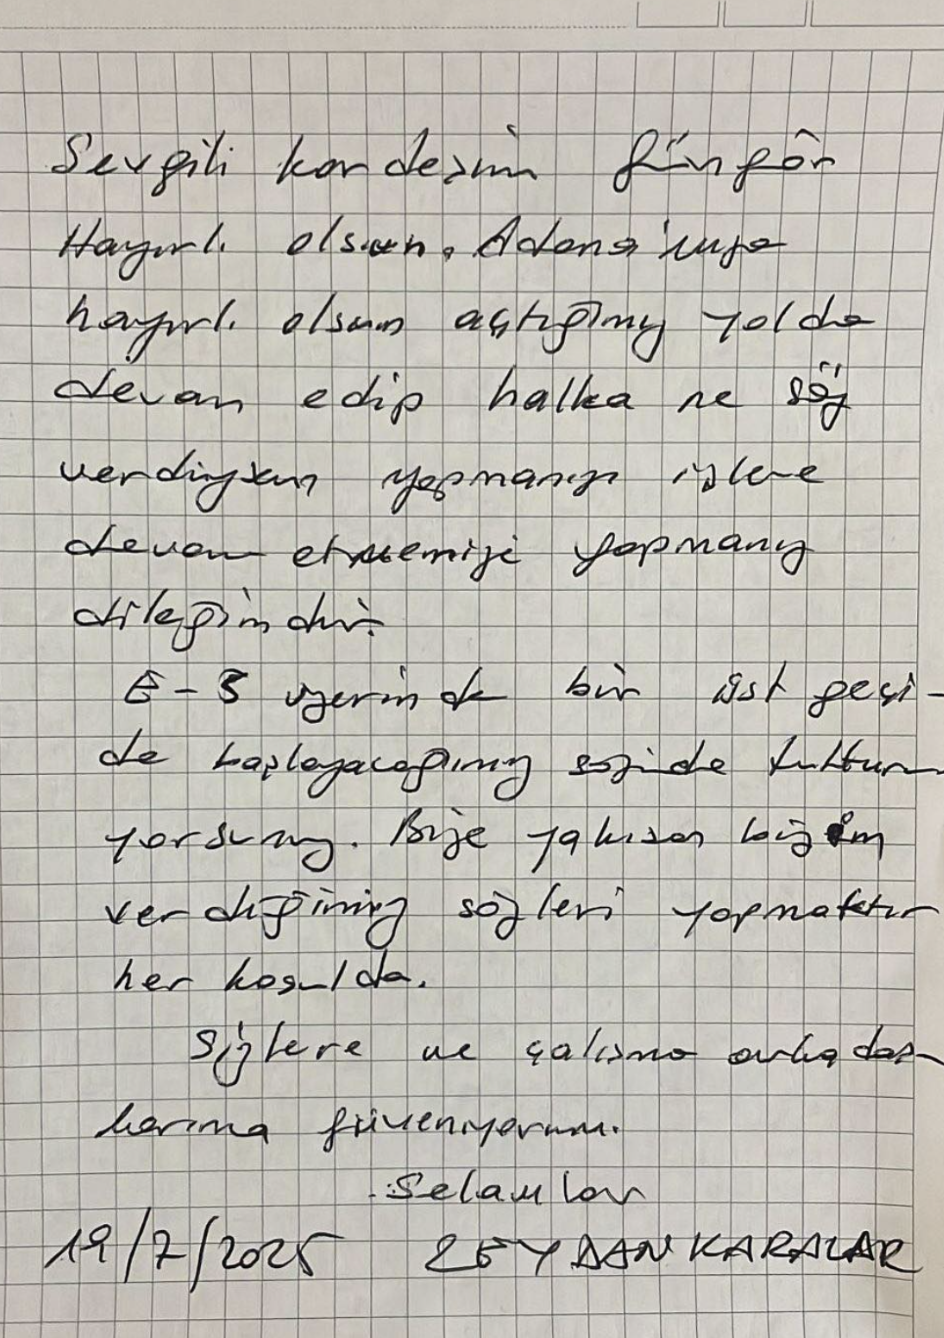 Sevgili kardeşim Güngör
Hayırlı olsun. Adana'mıza
hayırlı olsun açtığımız yolda
devam edip halka ne söz
verdiysem yapmanızı işlere
devam etmemizi yapmanız
dileğimdir.
E-5 üzerinde bir üst geçi-
de başlayacağımız sözünde tuttum
yorsunuz. Bize yakışan bizim
verdiğimiz sözleri yapmaktır
her koşulda.
Sizlere ve çalışma arkadaş-
larıma güveniyorum.
Selamlar
19/7/2025 ZEYDAN KARALAR